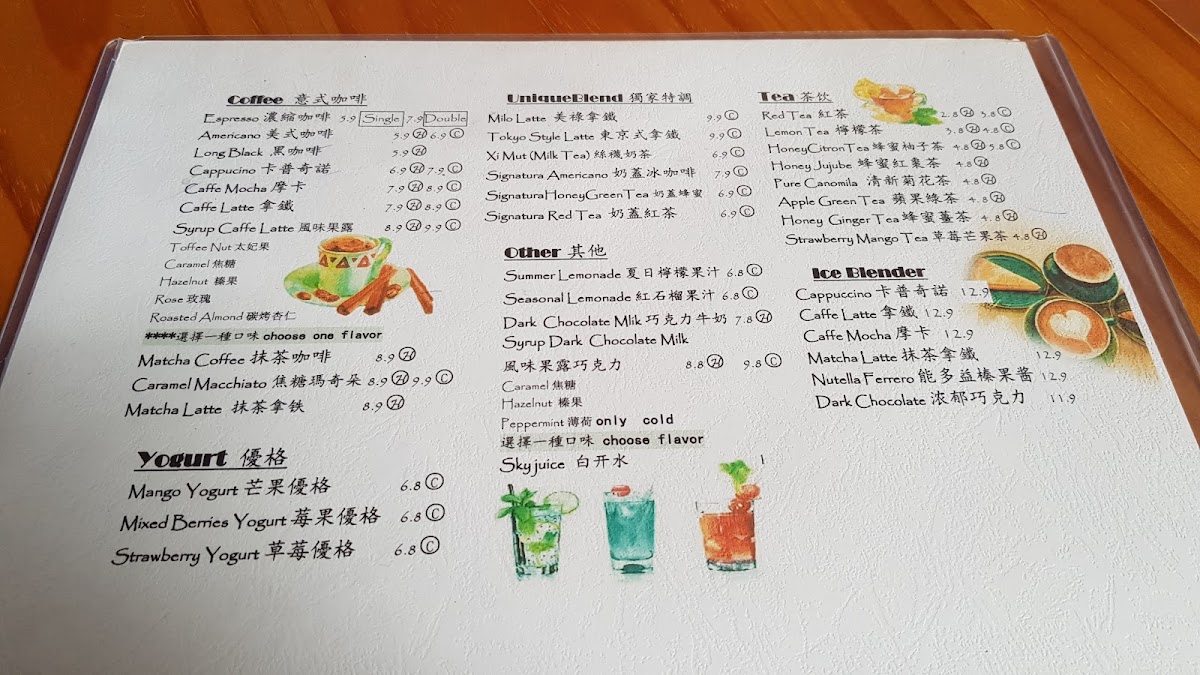 Coffee 意式咖啡
Espresso 濃縮咖啡 5.9 Single 7.9 Double
Americano 美式咖啡 5.9 Ⓗ 6.9 Ⓒ
Long Black 黑咖啡 5.9 Ⓗ
Cappucino 卡普奇諾 6.9 Ⓗ 7.9 Ⓒ
Caffe Mocha 摩卡 7.9 Ⓗ 8.9 Ⓒ
Caffe Latte 拿鐵 7.9 Ⓗ 8.9 Ⓒ
Syrup Caffe Latte 風味果露 8.9 Ⓗ 9.9 Ⓒ
Toffee Nut 太妃果
Caramel 焦糖
Hazelnut 榛果
Rose 玫瑰
Roasted Almond 碳烤杏仁
****選擇一種口味 choose one flavor
Matcha Coffee 抹茶咖啡 8.9 Ⓗ
Caramel Macchiato 焦糖瑪奇朵 8.9 Ⓗ 9.9 Ⓒ
Matcha Latte 抹茶拿铁 8.9 Ⓗ
Yogurt 優格
Mango Yogurt 芒果優格 6.8 Ⓒ
Mixed Berries Yogurt 莓果優格 6.8 Ⓒ
Strawberry Yogurt 草莓優格 6.8 Ⓒ
UniqueBlend 獨家特調
Milo Latte 美祿拿鐵 9.9 Ⓒ
Tokyo Style Latte 東京式拿鐵 9.9 Ⓒ
Xi Mut (Milk Tea) 絲襪奶茶 6.9 Ⓒ
Signatura Americano 奶蓋冰咖啡 7.9 Ⓒ
SignaturaHoneyGreenTea 奶蓋蜂蜜 6.9 Ⓒ
Signatura Red Tea 奶蓋紅茶 6.9 Ⓒ
Other 其他
Summer Lemonade 夏日檸檬果汁 6.8 Ⓒ
Seasonal Lemonade 紅石榴果汁 6.8 Ⓒ
Dark Chocolate Mlik 巧克力牛奶 7.8 Ⓗ
Syrup Dark Chocolate Milk
風味果露巧克力 8.8 Ⓗ 9.8 Ⓒ
Caramel 焦糖
Hazelnut 榛果
Peppermint 薄荷 only cold
選擇一種口味 choose flavor
Sky juice 白开水 1
Tea 茶饮
Red Tea 紅茶 2.8 Ⓗ 3.8 Ⓒ
Lemon Tea 檸檬茶 3.8 Ⓗ 4.8 Ⓒ
HoneyCitronTea 蜂蜜柚子茶 4.8 Ⓗ 5.8 Ⓒ
Honey Jujube 蜂蜜紅棗茶 4.8 Ⓗ
Pure Canomila 清新菊花茶 4.8 Ⓗ
Apple Green Tea 蘋果綠茶 4.8 Ⓗ
Honey Ginger Tea 蜂蜜薑茶 4.8 Ⓗ
Strawberry Mango Tea 草莓芒果茶 4.8 Ⓗ
Ice Blender
Cappuccino 卡普奇諾 12.9
Caffe Latte 拿鐵 12.9
Caffe Mocha 摩卡 12.9
Matcha Latte 抹茶拿鐵 12.9
Nutella Ferrero 能多益榛果醬 12.9
Dark Chocolate 浓郁巧克力 11.9